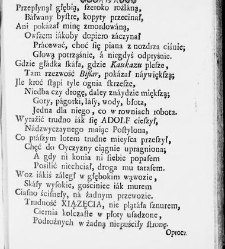 Przepłynął głębią, szeroko rozlaną,
Bałwany bystre, kopyty przecinał,
Ani pokazał minę zmordowaną,
Owszem iákoby dopiero záczynał
Prácowáć, choć się piana z nozdrza ciśnie;
Głową porząśnie, á niegdyś odpryśnie.
Gdzie gładka skáła, gdzie Kaukazu plesze,
Tam rzezwość Bystr, pokázał naywiększą;
Ile kroć stąpi tyle ognia skrzesze,
Niechba czy drogę, daley znáydzie miększą;
Gory, págorki, lásy, wody, błota,
Jedna dla niego, co w rowniach robota.
Wyrázić trudno iák się ADOLF cieszył,
Nádzwyczaynego maiąc Postyliona,
Co ptászym lotem trudne mieysca przeszył,
Chęć do Oyczyzny ciągnie upragniona;
A gdy ni konia ni siebie popasem
Posilić niechciał, droga mu tarasem.
Woz iákiś záległ w głębokim wąwozie,
Skáły wysokie, gościniec iák murem
Ciasno ściśnęły, ná żadnym przewozie.
Trudność XIĄZĘCIA, nie plątała sznurem,
Ciernia kolczaste w płoty usadzone,
Podrożnych w żadną niepuściły stronę.
Oprocz